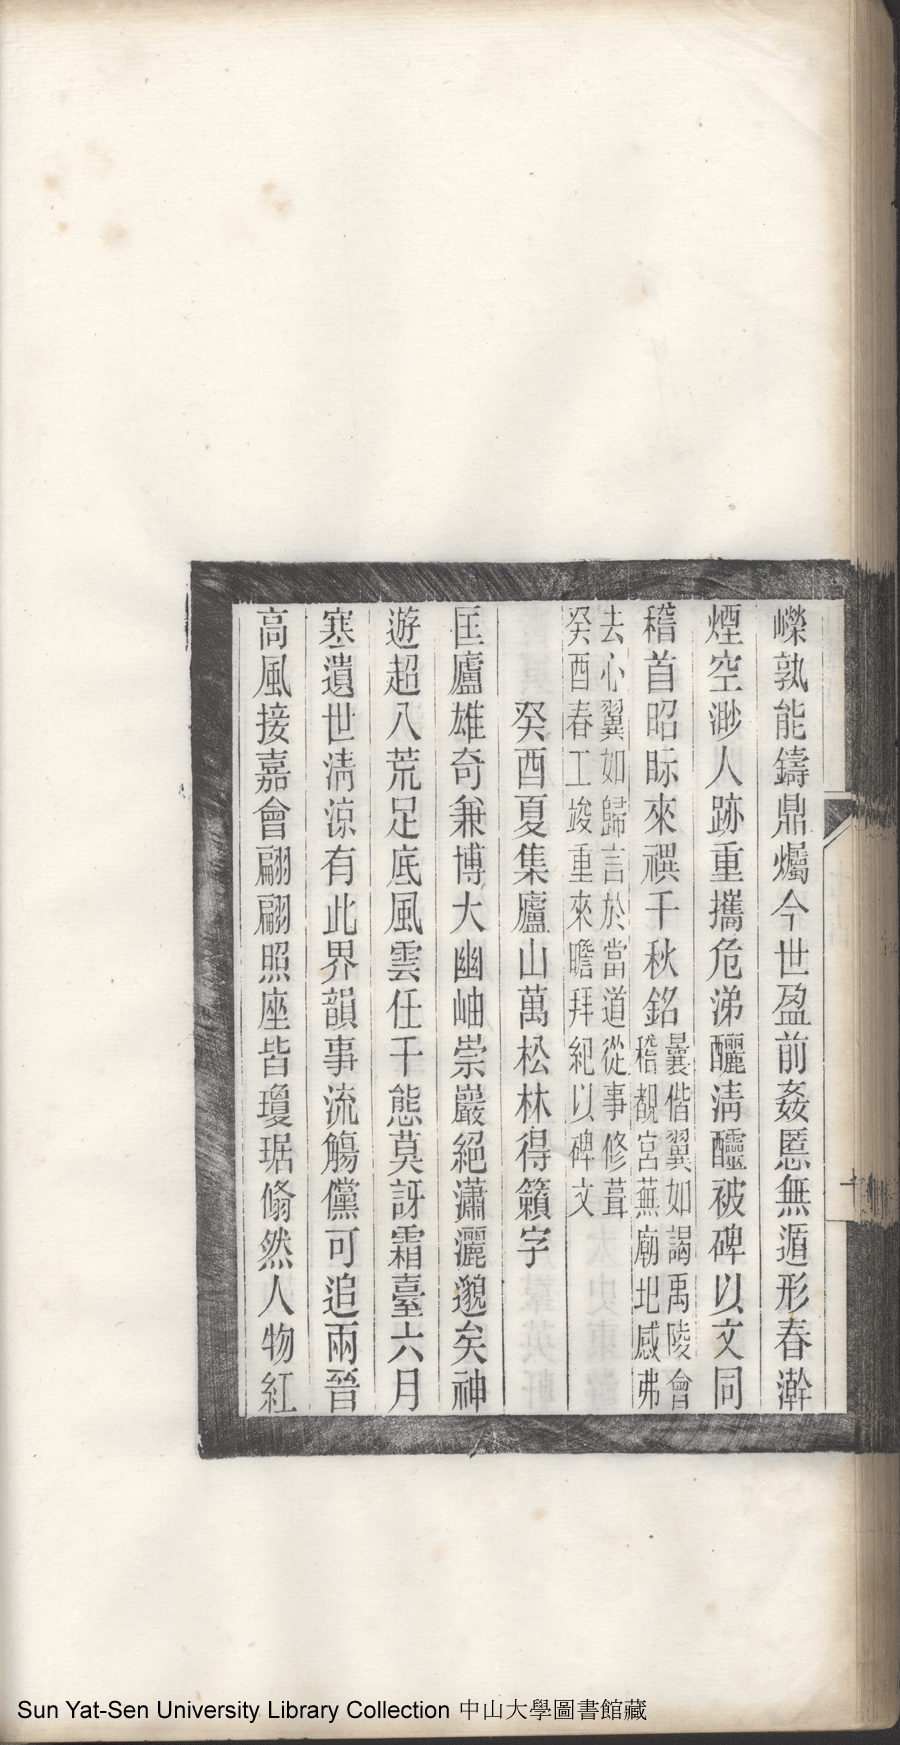 嶸孰能鑄鼎爥今世盈前姦慝無遁形春澣
煙空渺人跡重攜危涕釃淸醽被碑以文同
稽首昭眎來禩千秋銘曩偕翼如謁禹陵會
稽覩宮蕪廟圯慼弗
去心翼如歸言於當道從事修葺
癸酉春工竣重來瞻拜紀以碑文
癸酉夏集廬山萬松林得籟字
匡廬雄奇兼博大幽岫崇巖絕瀟灑邈矣神
遊超八荒足底風雲任千態莫訝霜臺六月
寒遺世淸涼有此界韻事流觴儻可追兩晉
高風接嘉會翩翩照座皆瓊琚翛然人物紅
十
Sun Yat-Sen University Library Collection 中山大學圖書館藏